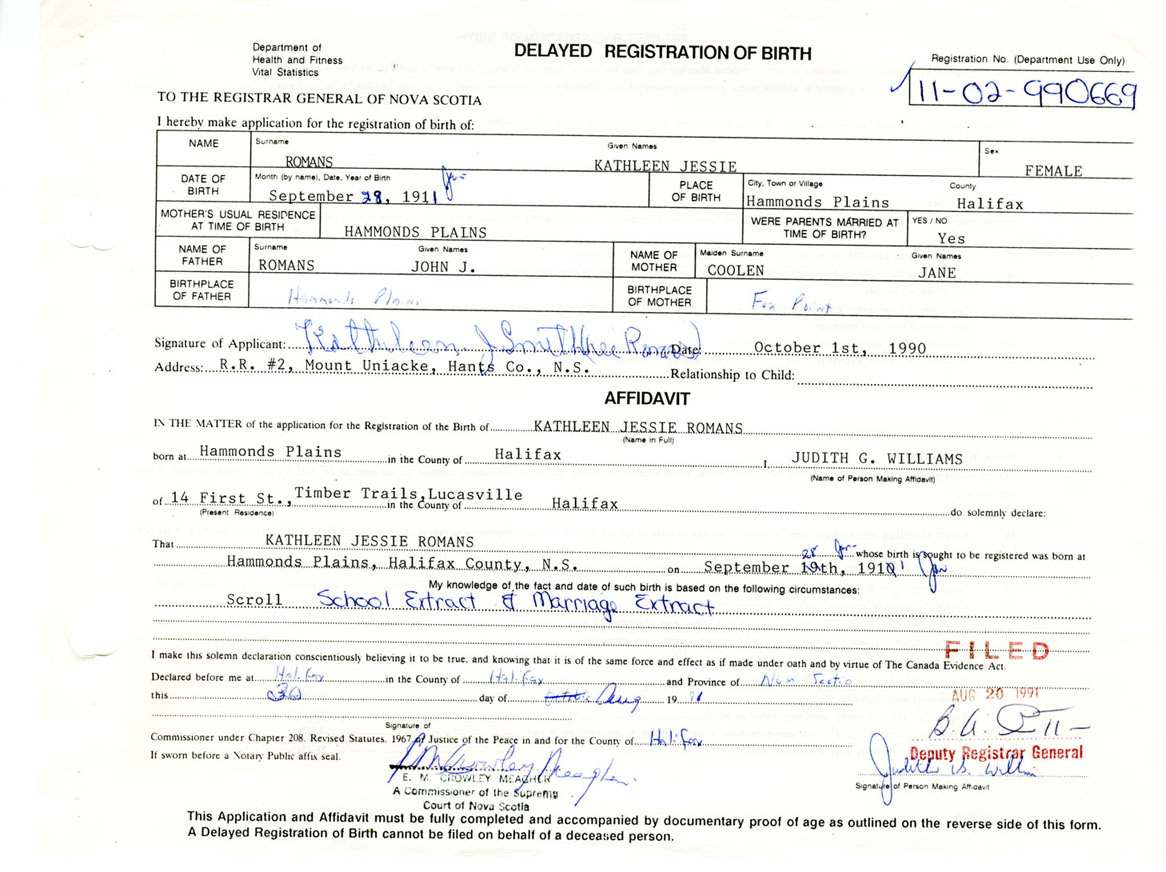 Department of
Health and Fitness
Vital Statistics
DELAYED REGISTRATION OF BIRTH
Registration No. (Department Use Only)
11-02-990669
TO THE REGISTRAR GENERAL OF NOVA SCOTIA
I hereby make application for the registration of birth of:
NAME Surname ROMANS Given Names KATHLEEN JESSIE Sex FEMALE
DATE OF BIRTH Month (by name), Date, Year of Birth September 28, 1911 PLACE OF BIRTH City, Town or Village Hammonds Plains County Halifax
MOTHER'S USUAL RESIDENCE AT TIME OF BIRTH HAMMONDS PLAINS WERE PARENTS MARRIED AT TIME OF BIRTH? YES / NO Yes
NAME OF FATHER Surname ROMANS Given Names JOHN J. NAME OF MOTHER Maiden Surname COOLEN Given Names JANE
BIRTHPLACE OF FATHER Hammonds Plains BIRTHPLACE OF MOTHER Fox Point
Signature of Applicant: Kathleen J Smith (nee Romans) Date: October 1st, 1990
Address: R.R. #2, Mount Uniacke, Hants Co., N.S. Relationship to Child:
AFFIDAVIT
IN THE MATTER of the application for the Registration of the Birth of KATHLEEN JESSIE ROMANS
(Name in Full)
born at Hammonds Plains in the County of Halifax I, JUDITH G. WILLIAMS
(Name of Person Making Affidavit)
of 14 First St., Timber Trails, Lucasville in the County of Halifax do solemnly declare:
(Present Residence)
That KATHLEEN JESSIE ROMANS whose birth is sought to be registered was born at
Hammonds Plains, Halifax County, N.S. on September 28 19th, 1911
My knowledge of the fact and date of such birth is based on the following circumstances:
Scroll School Extract & Marriage Extract
I make this solemn declaration conscientiously believing it to be true, and knowing that it is of the same force and effect as if made under oath and by virtue of The Canada Evidence Act.
FILED
Declared before me at Halifax in the County of Halifax and Province of Nova Scotia
AUG 20 1991
this 30 day of Aug 19 91
Signature of
Commissioner under Chapter 208. Revised Statutes. 1967 of Justice of the Peace in and for the County of Halifax
Deputy Registrar General
If sworn before a Notary Public affix seal.
E. M. CROWLEY MEAGHER
A Commissioner of the Supreme
Court of Nova Scotia
Signature of Person Making Affidavit
This Application and Affidavit must be fully completed and accompanied by documentary proof of age as outlined on the reverse side of this form.
A Delayed Registration of Birth cannot be filed on behalf of a deceased person.